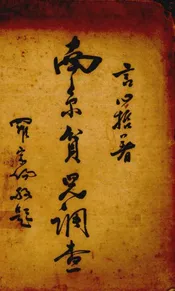 言心哲著
南京貧兒調查
羅家倫敬題